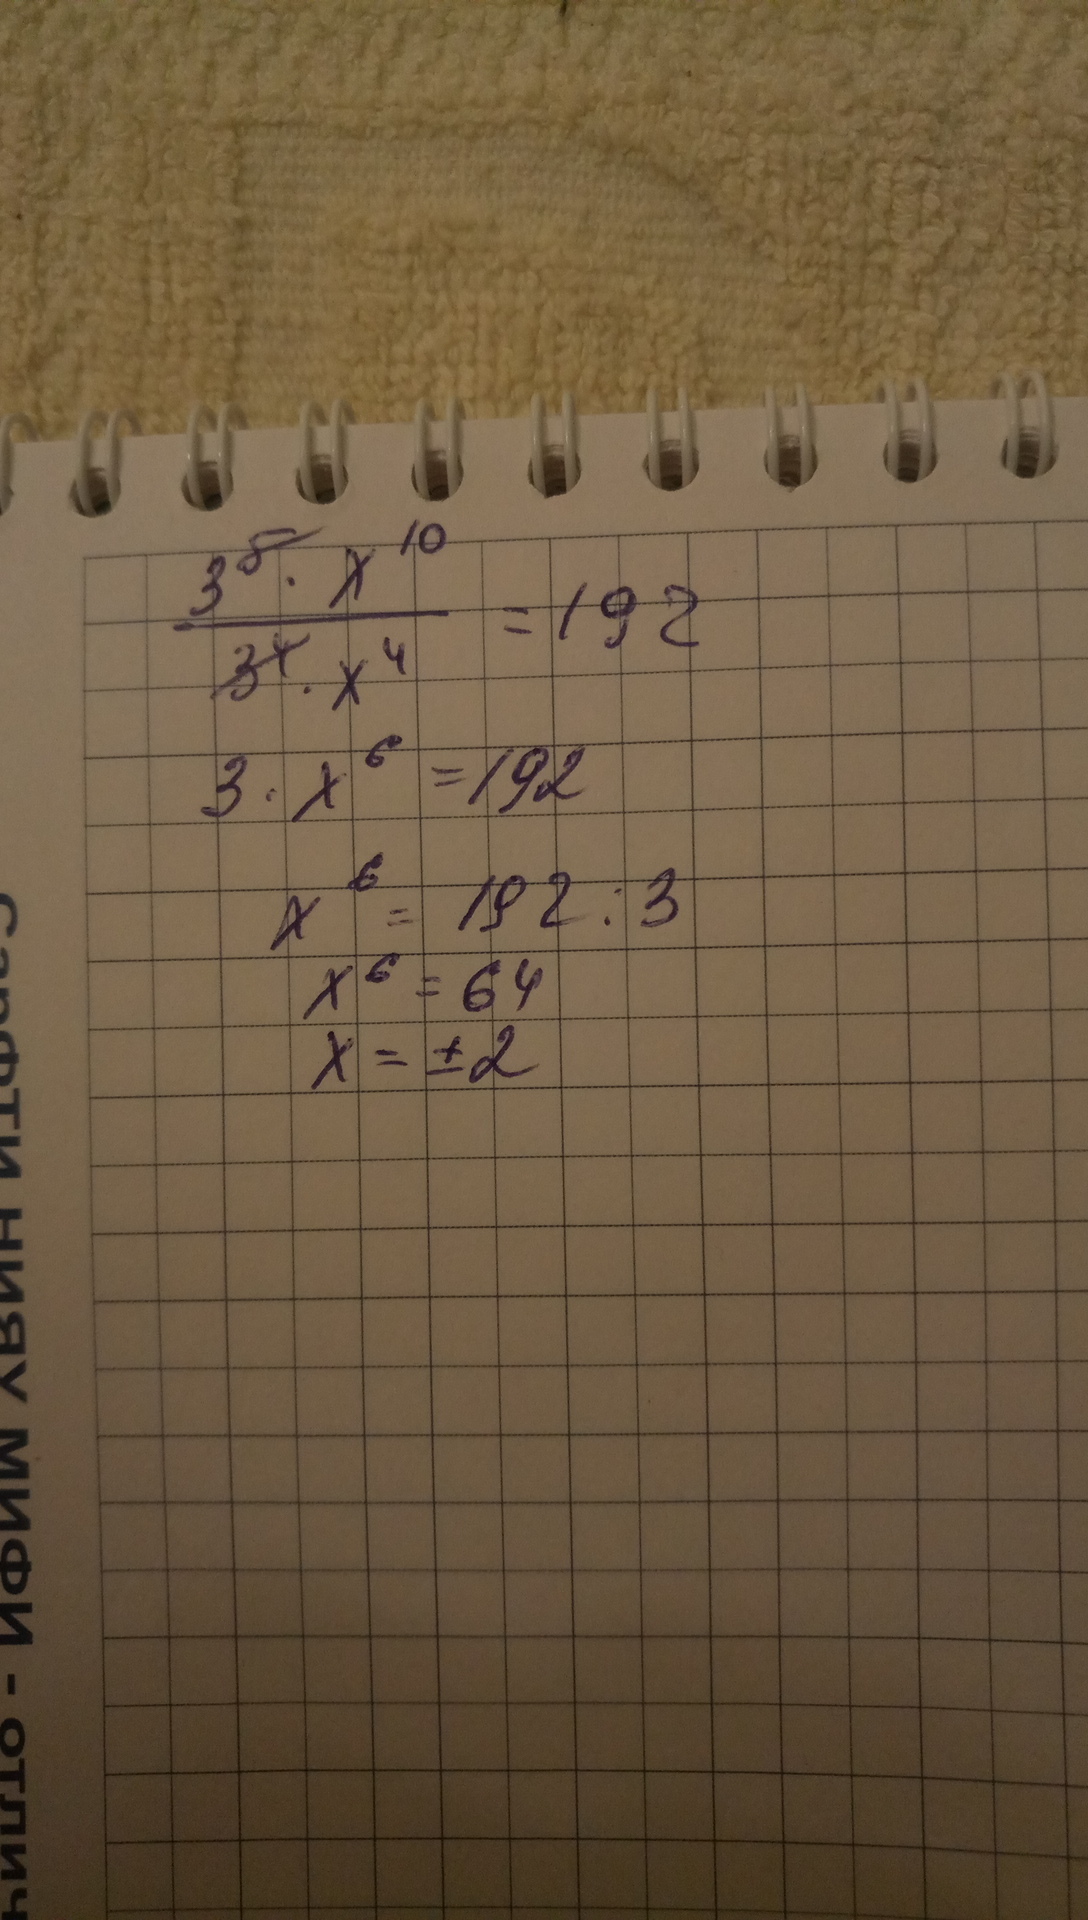 3⁵ · x¹⁰
3⁴ · x⁴
= 192
3 · x⁶ = 192
x⁶ = 192 : 3
x⁶ = 64
x = ± 2
САРФТИ НИЯУ МИФИ - ОТЛИЧН